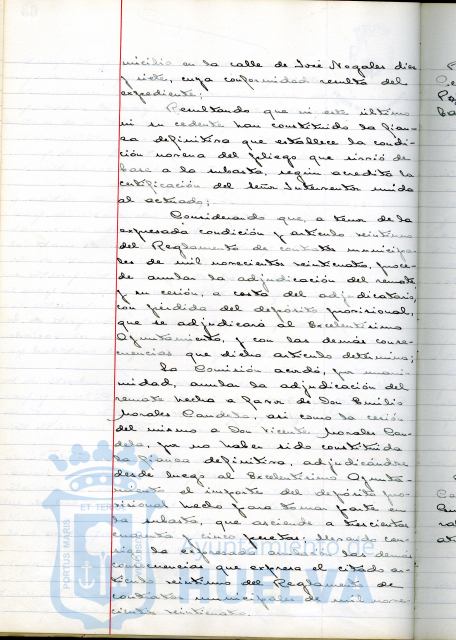 micilio en la calle de José Nogales diez
y siete, cuya conformidad resulta del
expediente;
Resultando que ni este último
ni su cedente han constituido la fian-
za definitiva que establece la condi-
ción novena del pliego que sirvió de
base a la subasta, según acredita la
certificación del Señor Interventor unida
al actuado;
Considerando que, a tenor de la
expresada condición y artículo veintiuno
del Reglamento de contratos municipa-
les de mil novecientos veinticuatro, proce-
de anular la adjudicación del remate
y su cesión, a costa del adjudicatario,
con pérdida del depósito provisional,
que se adjudicará al Excelentísimo
Ayuntamiento, y con las demás conse-
cuencias que dicho artículo determina;
La Comisión acordó, por unani-
midad, anular la adjudicación del
remate hecha a favor de Don Emilio
Morales Candela, así como la cesión
del mismo a Don Vicente Morales Can-
dela, por no haber sido constituida
la fianza definitiva, adjudicándose
desde luego al Excelentísimo Ayunta-
miento el importe del depósito pro-
visional hecho para tomar parte en
la subasta, que asciende a trescientas
cincuenta y cinco pesetas;
la expresada las demás
consecuencias que expresa el citado ar-
tículo veintiuno del Reglamento de
contratos municipales de mil nove-
cientos veinticuatro.
PORTUS MARIS
ET TERRAE
Ayuntamiento de
HUELVA